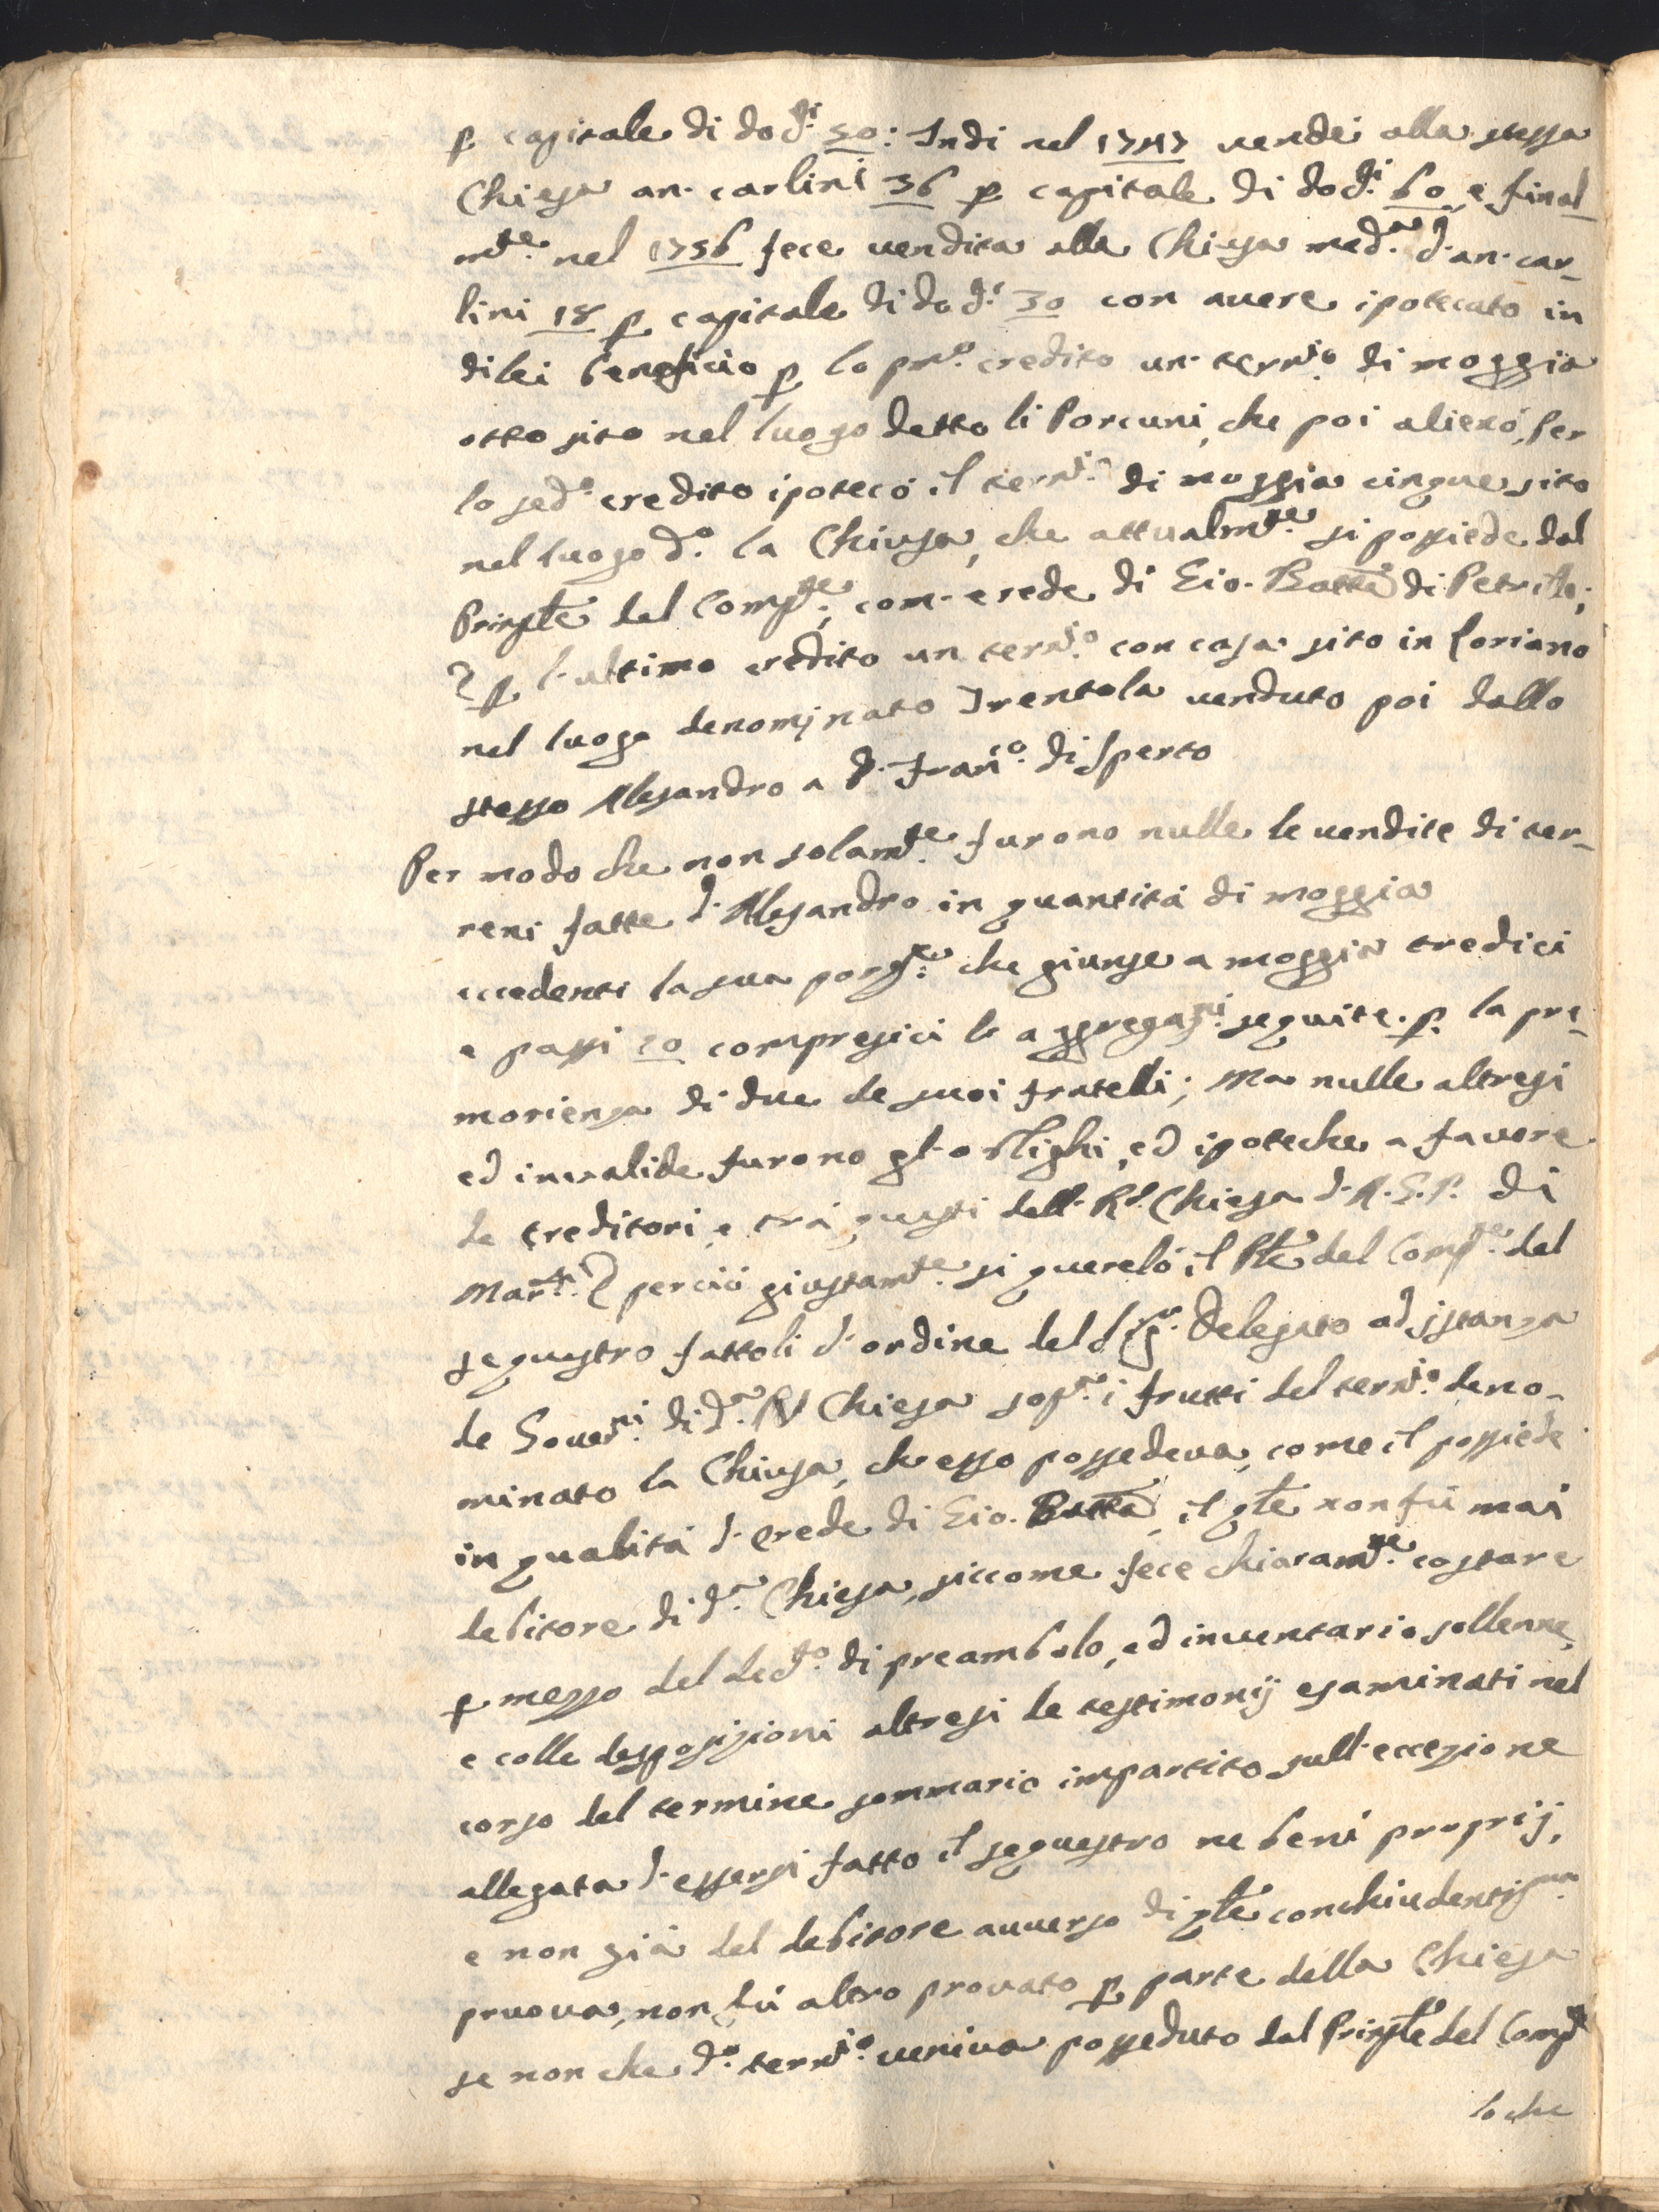 p capitale di do.ti 50: Indi nel 1747 vendè alla stessa
Chiesa an. carlini 36 p capitale di do.ti 60, e final-
m.te nel 1756 fece vendita alla Chiesa med.a d'an. car-
lini 18 p capitale di do.ti 30 con avere ipotecato in
di lei beneficio p lo pm.o credito un terr.io di moggia
otto sito nel luogo detto li Porcuni, che poi alienò, Per
lo sed.o credito ipotecò il terr.io di moggia cinque sito
nel luogo d.o la Chiusa, che attualm.te si possiede dal
Prinple del Comp.te, com' erede di Gio. Batta di Petrillo;
E p l'ultimo credito un terr.io con casa sito in Loriano
nel luogo denominato Trentola venduto poi dallo
stesso Alesandro a D. Fran.o di Sperto
Per modo che non solam.te furono nulle le vendite di ter-
reni fatte d'Alesandro in quantità di moggia
eccedenti la sua porz.e che giunse a moggia tredici
e passi 20 compresici le aggregaz.ni seguite p la pre-
morienza di due de suoi fratelli; Ma nulle altresi
ed invalide furono gl'oblighi, ed ipoteche a favore
de creditori, e trà questi dell. R.l Chiesa d. A. G. P. di
Mar.se E perciò giustam.te si querelò il Ple del Comp.te del
sequestro fattoli d'ordine del Sig.r Delegato ad istanza
de Gover.ni di d.a R.l Chiesa sop.a i frutti del terr.io deno-
minato la Chiusa, ch'esso possedeva, come il possiede
in qualità d'erede di Gio. Batta, il qle non fù mai
debitore di d.a Chiesa, siccome fece chiaram.te costare
p mezzo del dec.to di preambolo, ed inventario sollenne,
e colle desposizioni altresi de testimonij esaminati nel
corso del termine sommario impartito sull'eccezione
allegata d'essersi fatto il sequestro ne beni proprij,
e non già del debitore avverso di qle conchiudentis.ma
pruova, non fù altro provato p parte della Chiesa
se non che d.o terr.io veniva posseduto dal Prinple del Comp.te
lo che